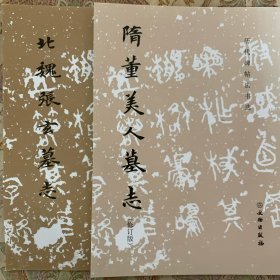 历代碑帖法书选
隋董美人墓志
(修订版)
文物出版社
北魏張玄墓志